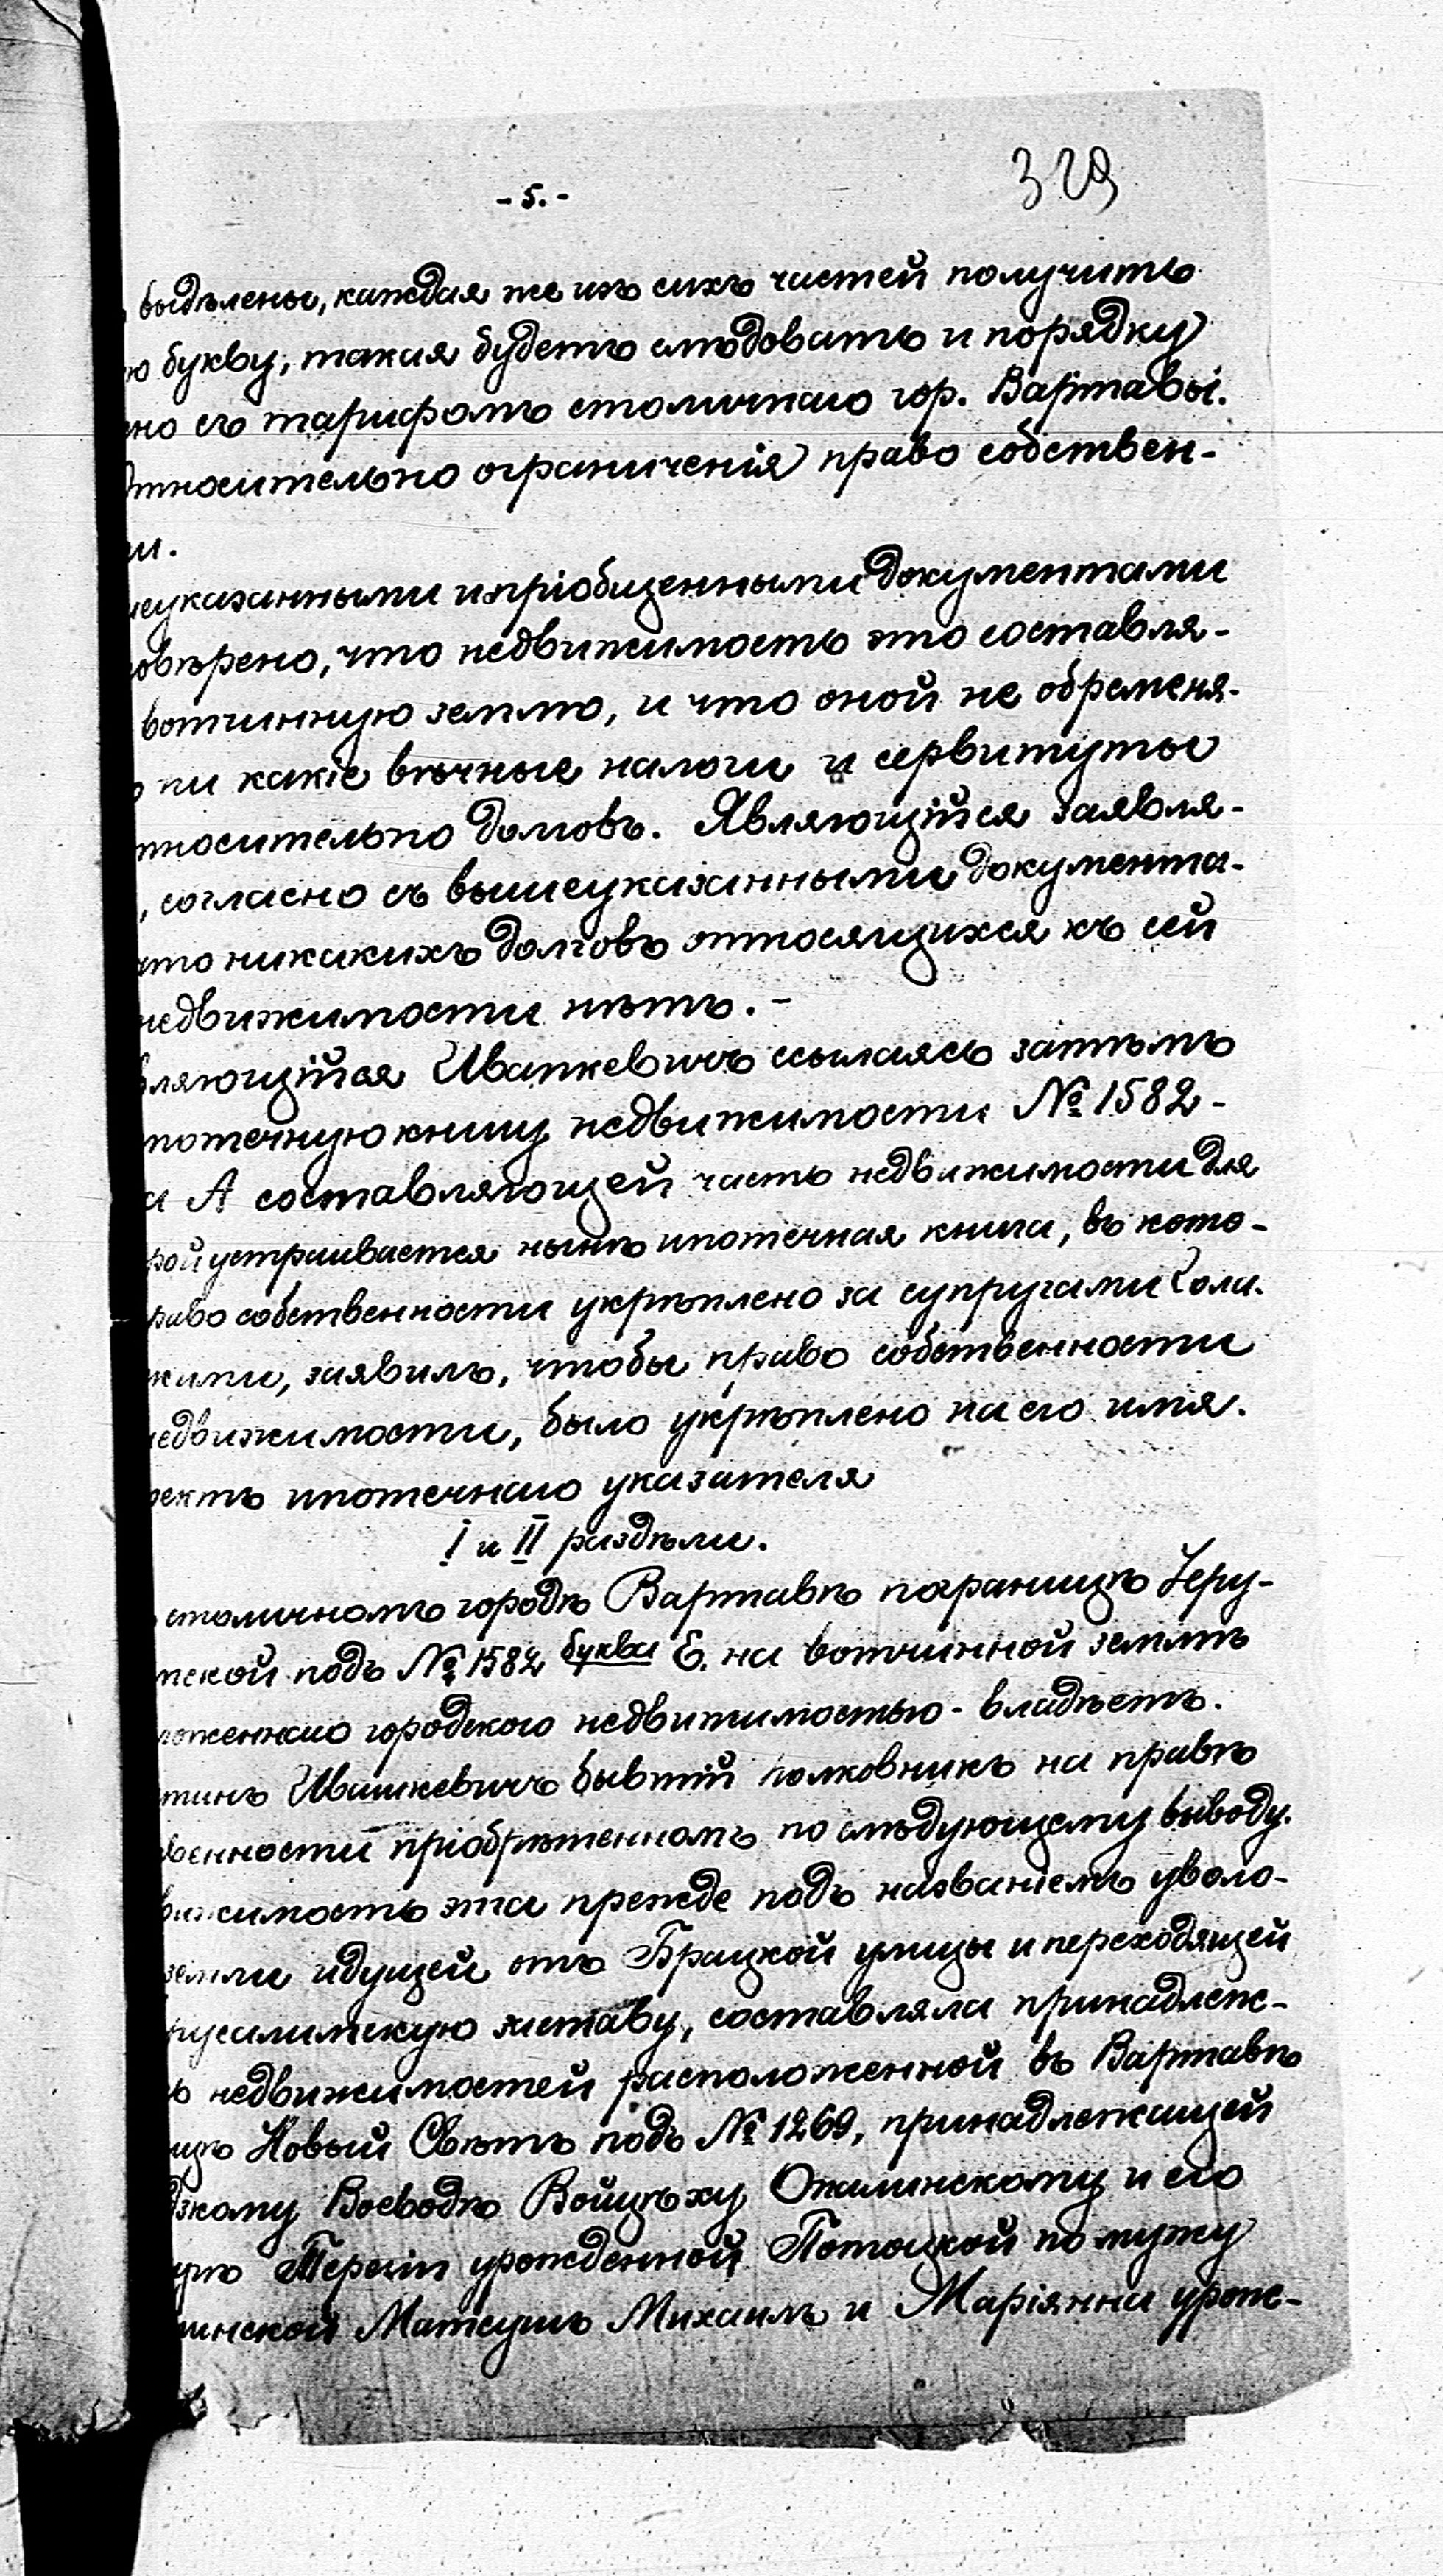 329
- 5. -
выдѣлены, каждая же изъ сихъ частей получитъ
ю букву, такая будетъ слѣдовать и порядку
но съ тарифомъ столичнаго гор. Варшавы.
Относительно ограниченія право собствен-
ти.
шеуказанными и пріобщенными документами
овѣрено, что недвижимость это составля-
вотчинную землю, и что оной не обременя-
о ни какіе вѣчные налоги и сервитуты
тносительно долговъ. Являющійся заявля-
, согласно съ вышеуказанными документа-
что никакихъ долговъ относящихся къ сей
недвижимости нѣтъ. -
вляющійся Ивашкевичъ ссылаясь затѣмъ
потечную книгу недвижимости № 1582 -
а А составляющей часть недвижимости для
рой устраивается нынѣ ипотечная книга, въ кото-
раво собственности укрѣплено за супругами Голи-
кими, заявилъ, чтобы право собственности
недвижимости, было укрѣплено на его имя.
оектъ ипотечнаго указателя
I и II раздѣли.
столичномъ городѣ Варшавѣ пограницѣ Іеру-
мской подъ № 1582 буква Е. на вотчинной землѣ
ложеннаго городскою недвижимостью - владѣетъ.
тинъ Ивашкевичъ бывшій полковникъ на правѣ
венности пріобрѣтенномъ по слѣдующему выводу.
вижимость эта прежде подъ названіемъ уволо-
земли идущей отъ Брацкой улицы и переходящей
русалимскую заставу, составляла принадлеж-
ь недвижимостей расположенной въ Варшавѣ
ицѣ Новый Свѣтъ подъ № 1269, принадлежащей
дзкому Воеводѣ Войцѣху Опалинскому и его
Терезіи урожденной Потоцкой по мужу
линской Матеушъ Михаилъ и Маріянна урож-